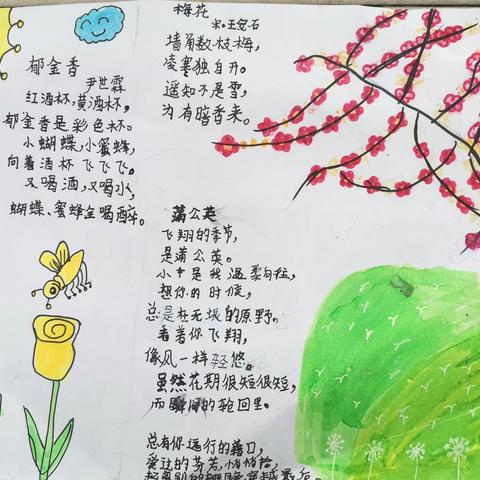 郁金香
尹世霖
红酒杯,黄酒杯,
郁金香是彩色杯。
小蝴蝶,小蜜蜂,
向着酒杯飞飞飞。
又喝酒,又喝水,
蝴蝶、蜜蜂全喝醉。
梅花
宋·王安石
墙角数枝梅,
凌寒独自开。
遥知不是雪,
为有暗香来。
蒲公英
飞翔的季节,
是蒲公英。
小中是我温柔向往,
想你的时候,
总是在无垠的原野。
看着你飞翔,
像风一样轻悠。
虽然花期很短很短,
而瞬间的轮回里。
总有你远行的藉口,
爱过的芬芳,悄悄拾,